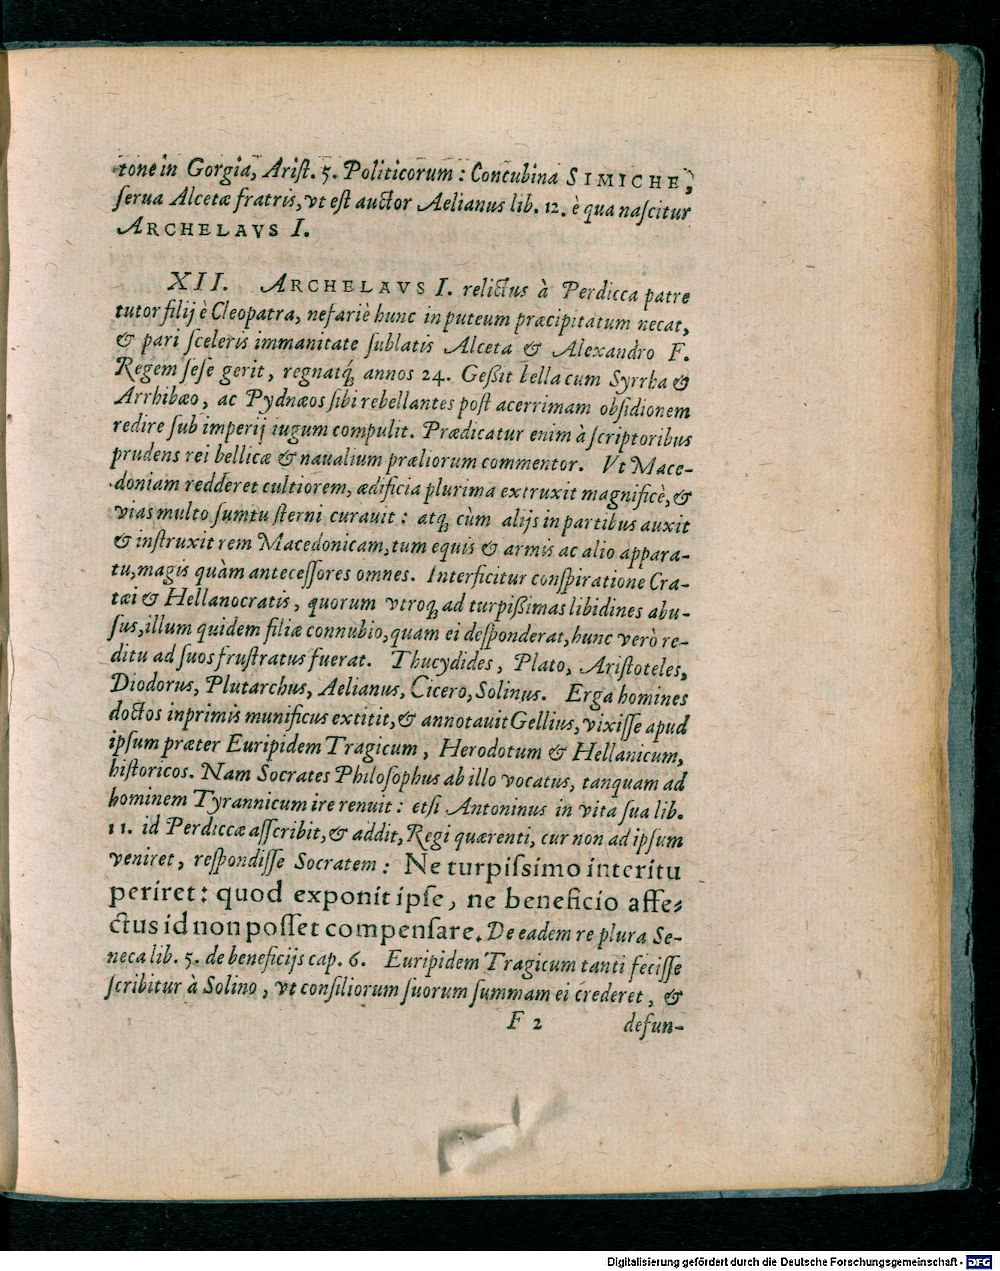 tone in Gorgia, Arist. 5. Politicorum: Concubina SIMICHE,
serua Alcetæ fratris, vt est auctor Aelianus lib. 12. è qua nascitur
ARCHELAVS I.
XII. ARCHELAVS I. relictus à Perdicca patre
tutor filij è Cleopatra, nefariè hunc in puteum præcipitatum necat,
& pari sceleris immanitate sublatis Alceta & Alexandro F.
Regem sese gerit, regnatq́; annos 24. Geßit bella cum Syrrha &
Arrhibæo, ac Pydnæos sibi rebellantes post acerrimam obsidionem
redire sub imperij iugum compulit. Prædicatur enim à scriptoribus
prudens rei bellicæ & naualium præliorum commentor. Vt Mace-
doniam redderet cultiorem, ædificia plurima extruxit magnificè, &
vias multo sumtu sterni curauit: atq; cùm alijs in partibus auxit
& instruxit rem Macedonicam, tum equis & armis ac alio appara-
tu, magis quàm antecessores omnes. Interficitur conspiratione Cra-
tæi & Hellanocratis, quorum vtroq; ad turpißimas libidines abu-
sus, illum quidem filiæ connubio, quam ei desponderat, hunc verò re-
ditu ad suos frustratus fuerat. Thucydides, Plato, Aristoteles,
Diodorus, Plutarchus, Aelianus, Cicero, Solinus. Erga homines
doctos inprimis munificus extitit, & annotauit Gellius, vixisse apud
ipsum præter Euripidem Tragicum, Herodotum & Hellanicum,
historicos. Nam Socrates Philosophus ab illo vocatus, tanquam ad
hominem Tyrannicum ire renuit: etsi Antoninus in vita sua lib.
11. id Perdiccæ asscribit, & addit, Regi quærenti, cur non ad ipsum
veniret, respondisse Socratem: Ne turpissimo interitu
periret: quod exponit ipse, ne beneficio affe-
ctus id non posset compensare. De eadem re plura Se-
neca lib. 5. de beneficijs cap. 6. Euripidem Tragicum tanti fecisse
scribitur à Solino, vt consiliorum suorum summam ei crederet, &
F 2 defun-
Digitalisierung gefördert durch die Deutsche Forschungsgemeinschaft - DFG